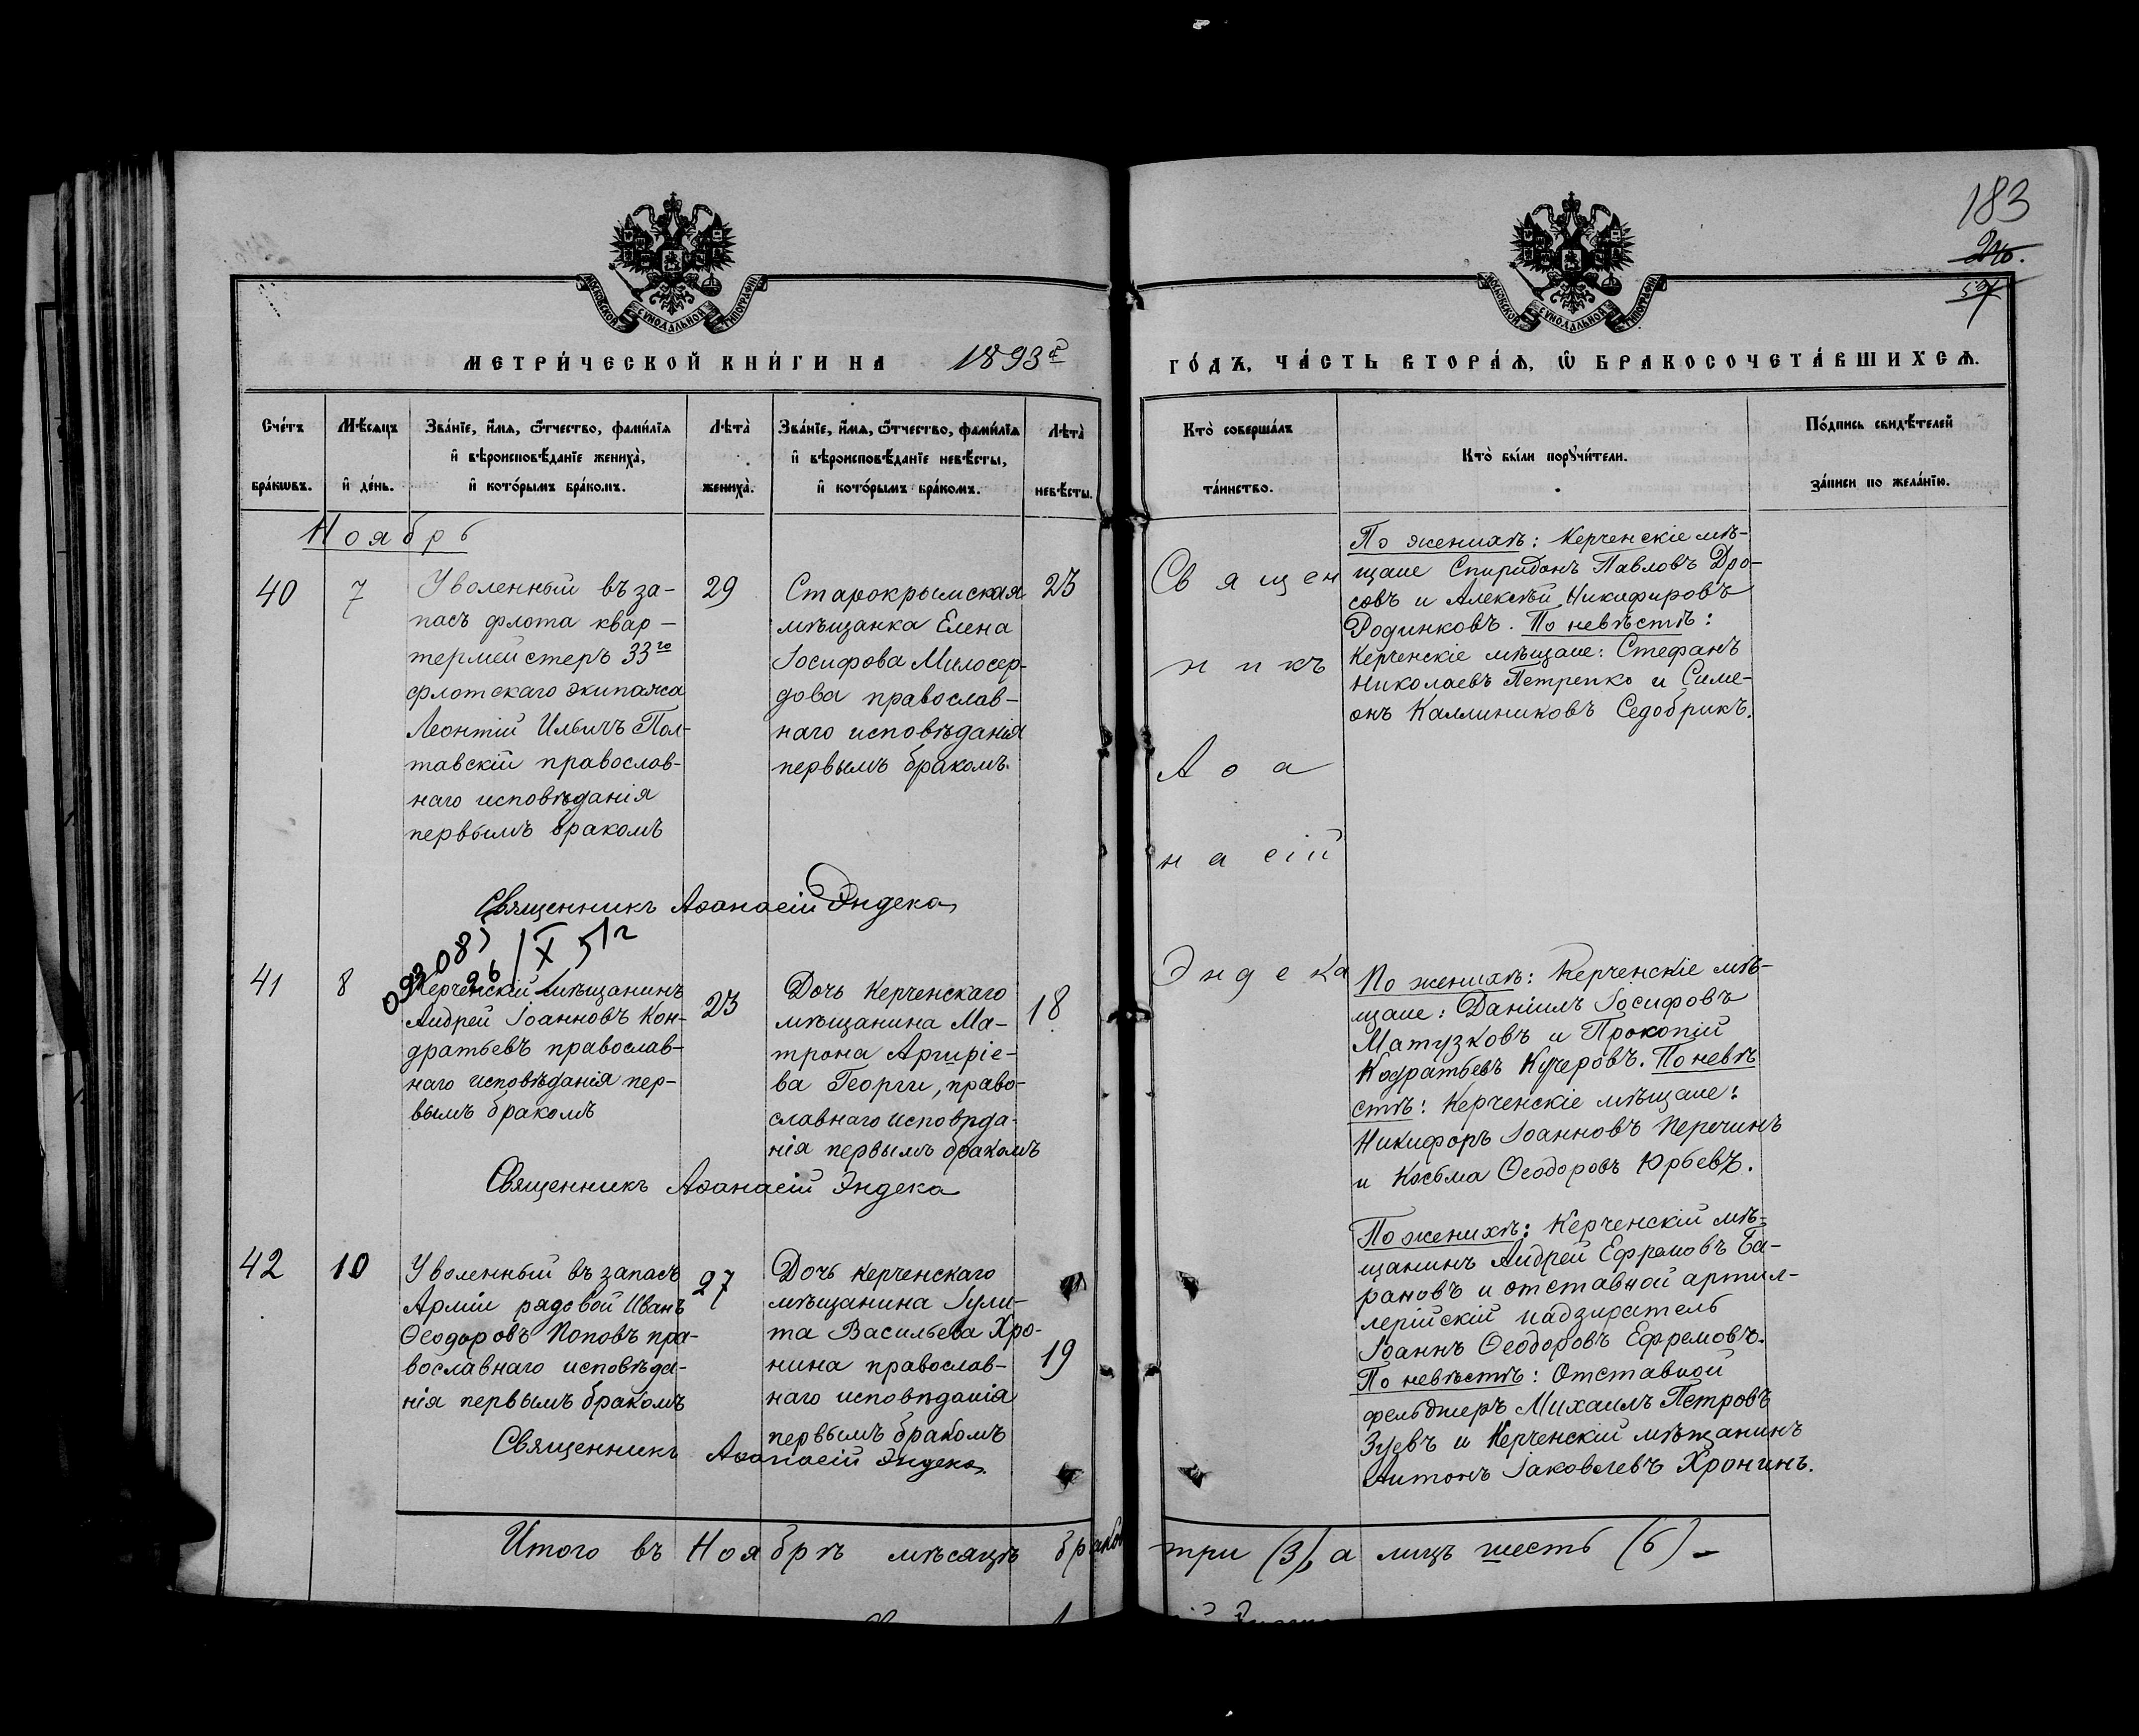 183
246.
57
МОСКОВСКОЙ СѴНОДАЛЬНОЙ ТИПОГРАФІИ
МОСКОВСКОЙ СѴНОДАЛЬНОЙ ТИПОГРАФІИ
МЕТРИ́ЧЕСКОЙ КНИ́ГИ НА 1893й
ГО́ДЪ, ЧА́СТЬ ВТОРА́Ѧ, Ѽ БРАКОСОЧЕТА́ВШИХСѦ.
Сче́тъ бра́кѡвъ.
Мѣ́сѧцъ и҆ де́нь.
Зва́нїе, и҆́мѧ, ѻ҆́тчество, фами́лїѧ и҆ вѣроисповѣ́данїе жениха̀, и҆ кото́рымъ бра́комъ.
Лѣта̀ жениха̀.
Зва́нїе, и҆́мѧ, ѻ҆́тчество, фами́лїѧ и҆ вѣроисповѣ́данїе невѣ́сты, и҆ кото́рымъ бра́комъ.
Лѣта̀ невѣ́сты.
Кто̀ соверша́лъ та́инство.
Кто̀ бы́ли порꙋчи́тели.
По́дпись свидѣ́телей за́писи по жела́нїю.
Ноябрь
40
7
Уволенный въ за-
пасъ флота квар-
термейстеръ 33го
флотскаго экипажа
Леонтій Ильичъ Пол-
тавскій православ-
наго исповѣданія
первымъ бракомъ
29
Старокрымская
мѣщанка Елена
Іосифова Милосер-
дова православ-
наго исповѣданія
первымъ бракомъ.
23
Священ
никъ
Аѳа
насій
Эндека
По женихѣ: Керченскіе мѣ-
щане Спиридонъ Павловъ Дро-
совъ и Алексѣй Никифировъ
Родинковъ. По невѣстѣ:
Керченскіе мѣщане: Стефанъ
Николаевъ Петренко и Симе-
онъ Каллиниковъ Седобрикъ.
Священникъ Аѳанасій Эндека
26/X 51г
41
8
Керченскій мѣщанинъ
Андрей Іоанновъ Кон-
дратьевъ православ-
наго исповѣданія пер-
вымъ бракомъ
23
Дочь Керченскаго
мѣщанина Ма-
трона Аргиріе-
ва Георги, право-
славнаго исповѣда-
нія первымъ бракомъ
18
По женихѣ: Керченскіе мѣ-
щане: Даніилъ Іосифовъ
Матузковъ и Прокопій
Кодратьевъ Кучеровъ. По невѣ
стѣ: Керченскіе мѣщане:
Никифоръ Іоанновъ Перечинъ
и Косьма Ѳеодоровъ Юрьевъ.
Священникъ Аѳанасій Эндека
42
10
Уволенный въ запасъ
Арміи рядовой Иванъ
Ѳеодоровъ Поповъ пра-
вославнаго исповѣда-
нія первымъ бракомъ
27
Дочь керченскаго
мѣщанина Іули-
та Васильева Хро-
нина православ-
наго исповѣданія
первымъ бракомъ
19
По женихѣ: Керченскій мѣ-
щанинъ Андрей Ефремовъ Ба-
рановъ и отставной артил-
лерійскій надзиратель
Іоаннъ Ѳеодоровъ Ефремовъ.
По невѣстѣ: Отставной
фельдшеръ Михаилъ Петровъ
Зуевъ и Керченскій мѣщанинъ
Антонъ Іаковлевъ Хронинъ.
Священникъ Аѳанасій Эндека
Итого въ Ноябрѣ мѣсяцѣ браков три (3), а лицъ шесть (6) –